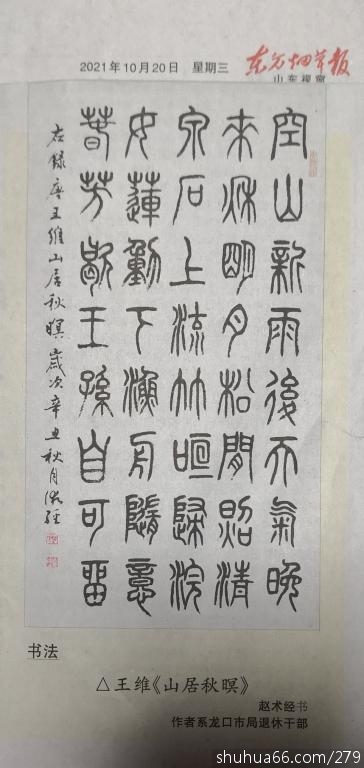 2021年10月20日 星期三
东方烟草报
山东视窗
空山新雨後天氣晚
來秋明月松間照清
泉石上流竹喧歸浣
女蓮動下漁舟隨意
春芳歇王孫自可留
右錄唐王維山居秋暝歲次辛丑秋月術經
书法
△王维《山居秋暝》
赵术经书
作者系龙口市局退休干部
shuhua66.com/279